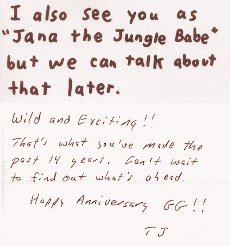 I also see you as
"Jana the Jungle Babe"
but we can talk about
that later.
Wild and Exciting!!
That's what you've made the
past 14 years. Can't wait
to find out what's ahead.
Happy Anniversary GG!!
TJ